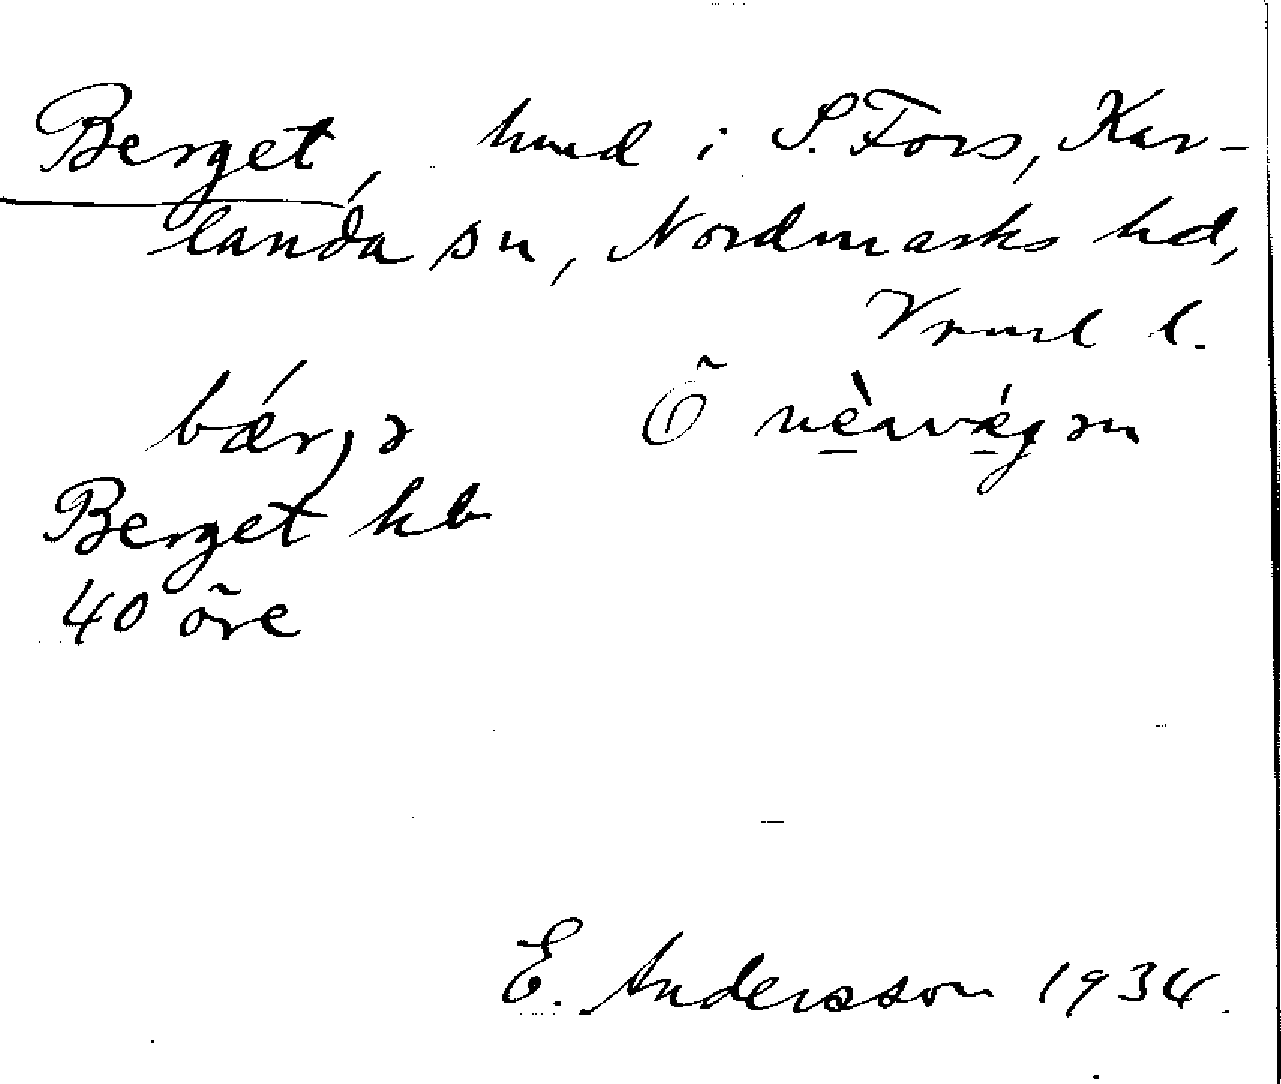 Berget, hmd i S. Fors, Kar-
landa sn, Nordmarks hd,
Vrml l.
bǽr,ə Ö nèrvǽgən
Berget hb
40 öre
E. Andersson 1934.